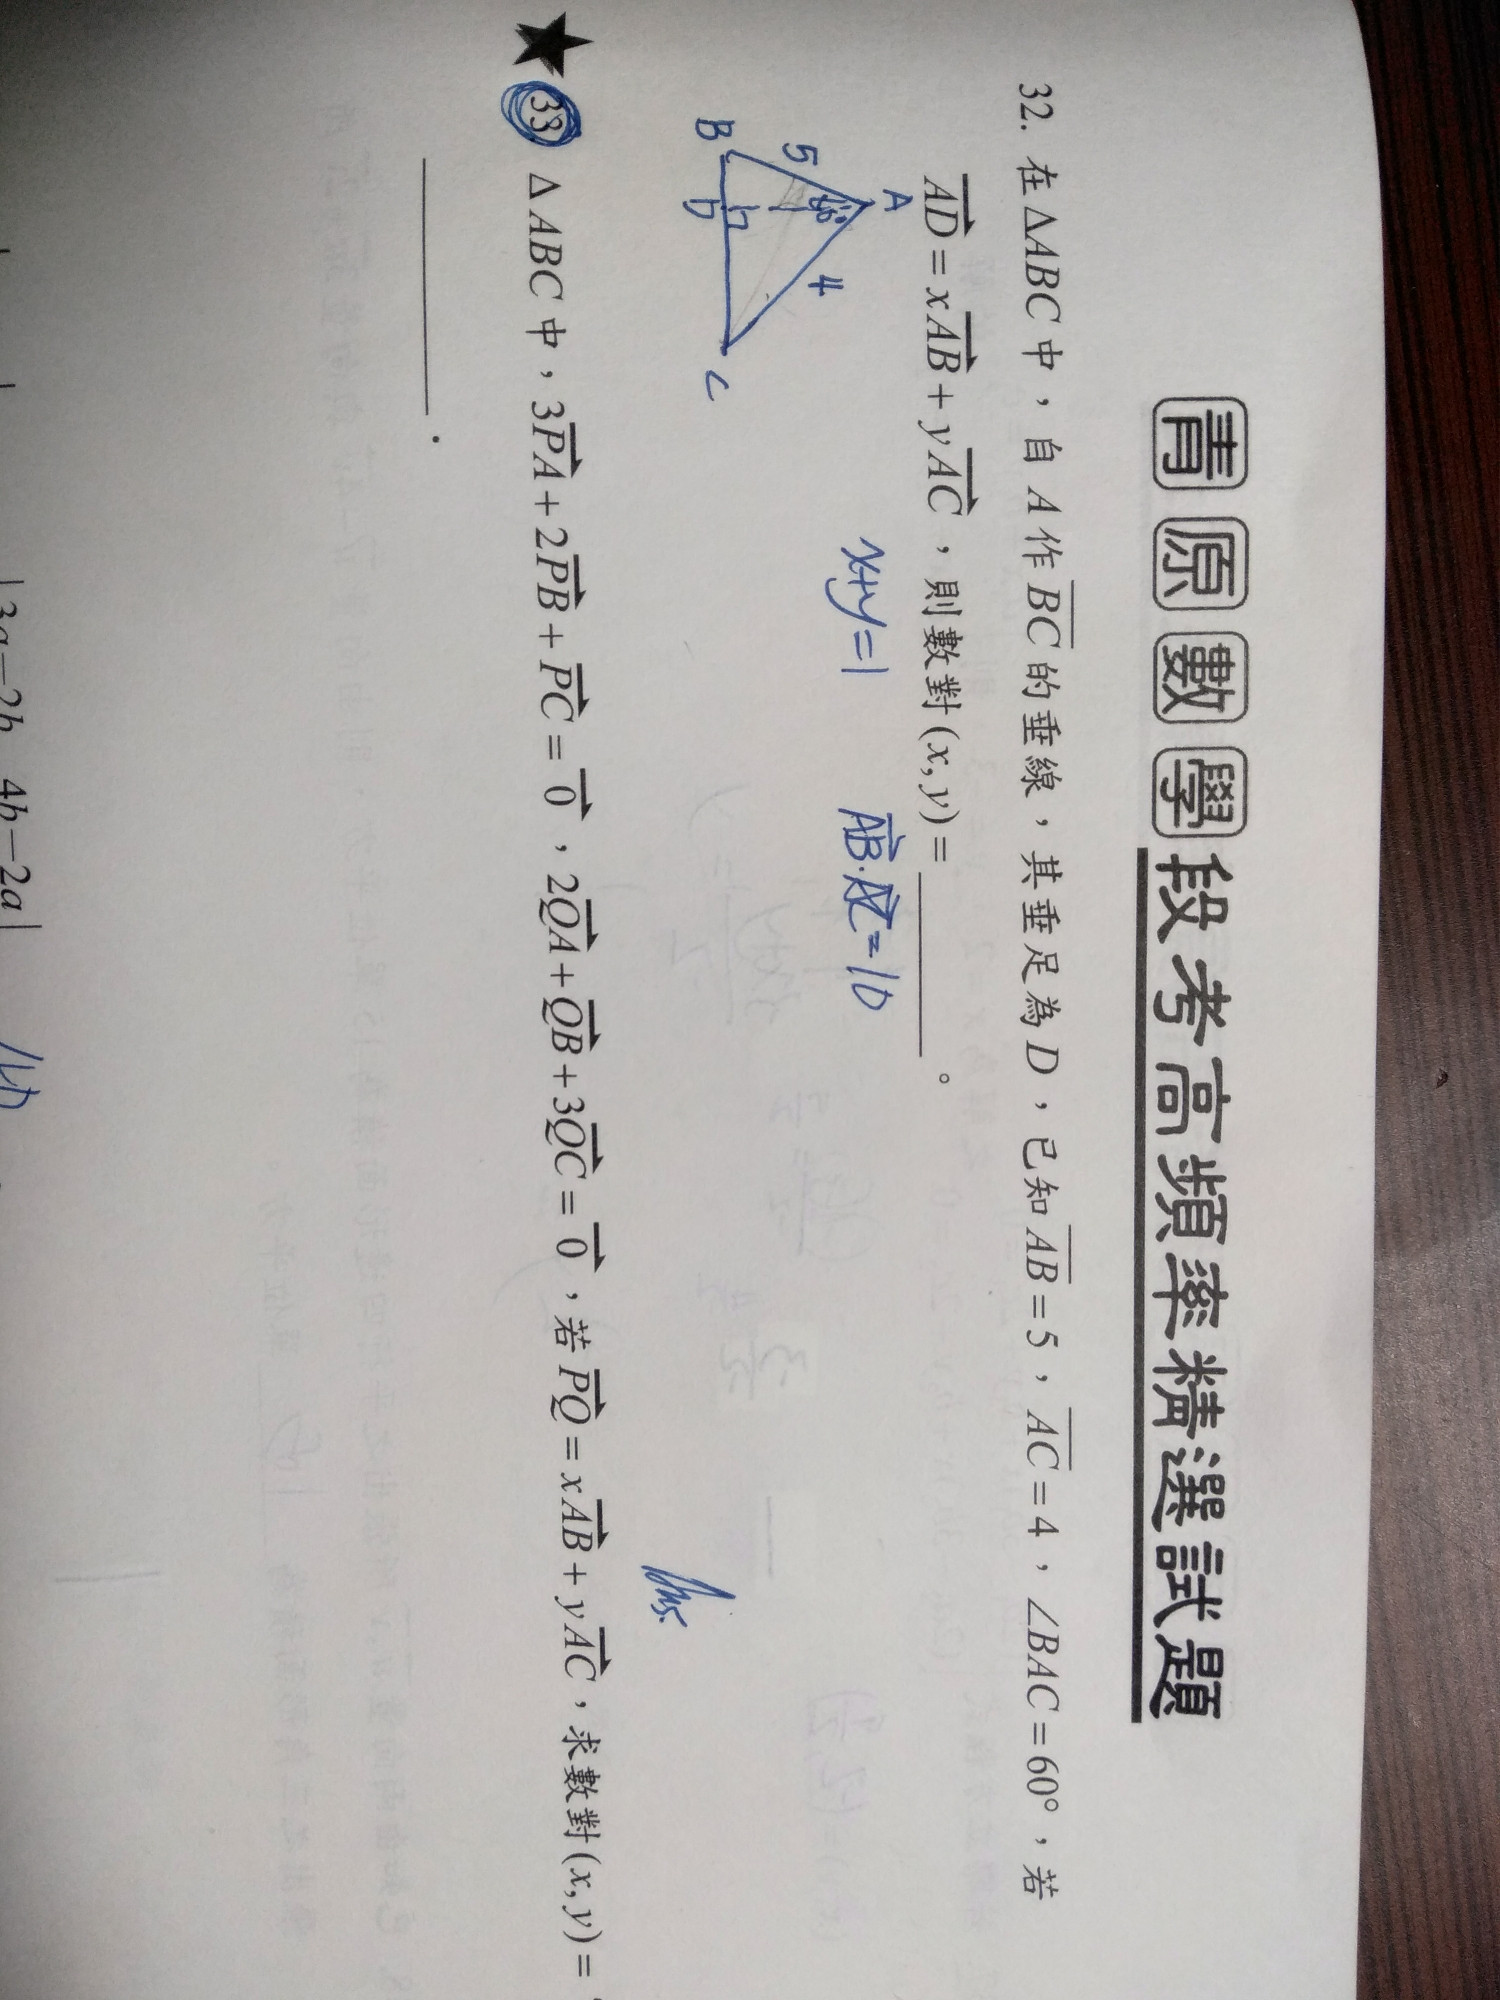 青原數學段考高頻率精選試題
32. 在△ABC中，自A作BC的垂線，其垂足為D，已知AB=5，AC=4，∠BAC=60°，若
AD=xAB+yAC，則數對(x,y)=______。
x+y=1 AB·AC=10
A
5 60° 4
B D C
Ans.
33 △ABC中，3PA+2PB+PC=0，2QA+QB+3QC=0，若PQ=xAB+yAC，求數對(x,y)=
______.
|3a-2b 4b-2a|